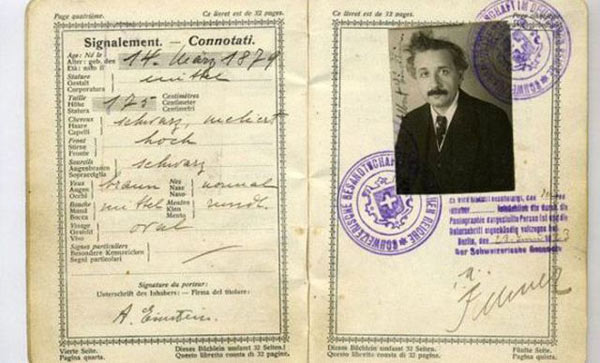 Page quatrième.
Ce livret est de 32 pages.
Signalement. — Connotati.
Age: Né le
Alter: geb. den
Età: nato il
14. März 1879
Stature
Gestalt
Corporatura
mittel
Taille
Höhe
Statura
175
Centimètres
Centimeter
Centimetri
Cheveux
Haare
Capelli
schwarz, meliert
Front
Stirne
Fronte
hoch
Sourcils
Augenbrauen
Sopracciglia
schwarz
Yeux
Augen
Occhi
braun
Nez
Nase
Naso
normal
Bouche
Mund
Bocca
mittel
Menton
Kinn
Mento
rund
Visage
Gesicht
Viso
oval
Signes particuliers
Besondere Kennzeichen
Segni particolari
Signature du porteur:
Unterschrift des Inhabers: — Firma del titolare:
A. Einstein.
Vierte Seite.
Pagina quarta.
Dieses Büchlein umfasst 32 Seiten.
Questo libretto consta di 32 pagine.
Ce livret est de 32 pages.
Page cinquième.
SCHWEIZERISCHE GESANDTSCHAFT
Es wird hiermit bescheinigt, dass
Photographie dargestellte Person ist und die
Unterschrift eigenhändig vollzogen hat.
Berlin, den
Der Schweizerische Gesandte
Dieses Büchlein umfasst 32 Seiten.
Questo libretto consta di 32 pagine.
Fünfte Seite.
Pagina quinta.